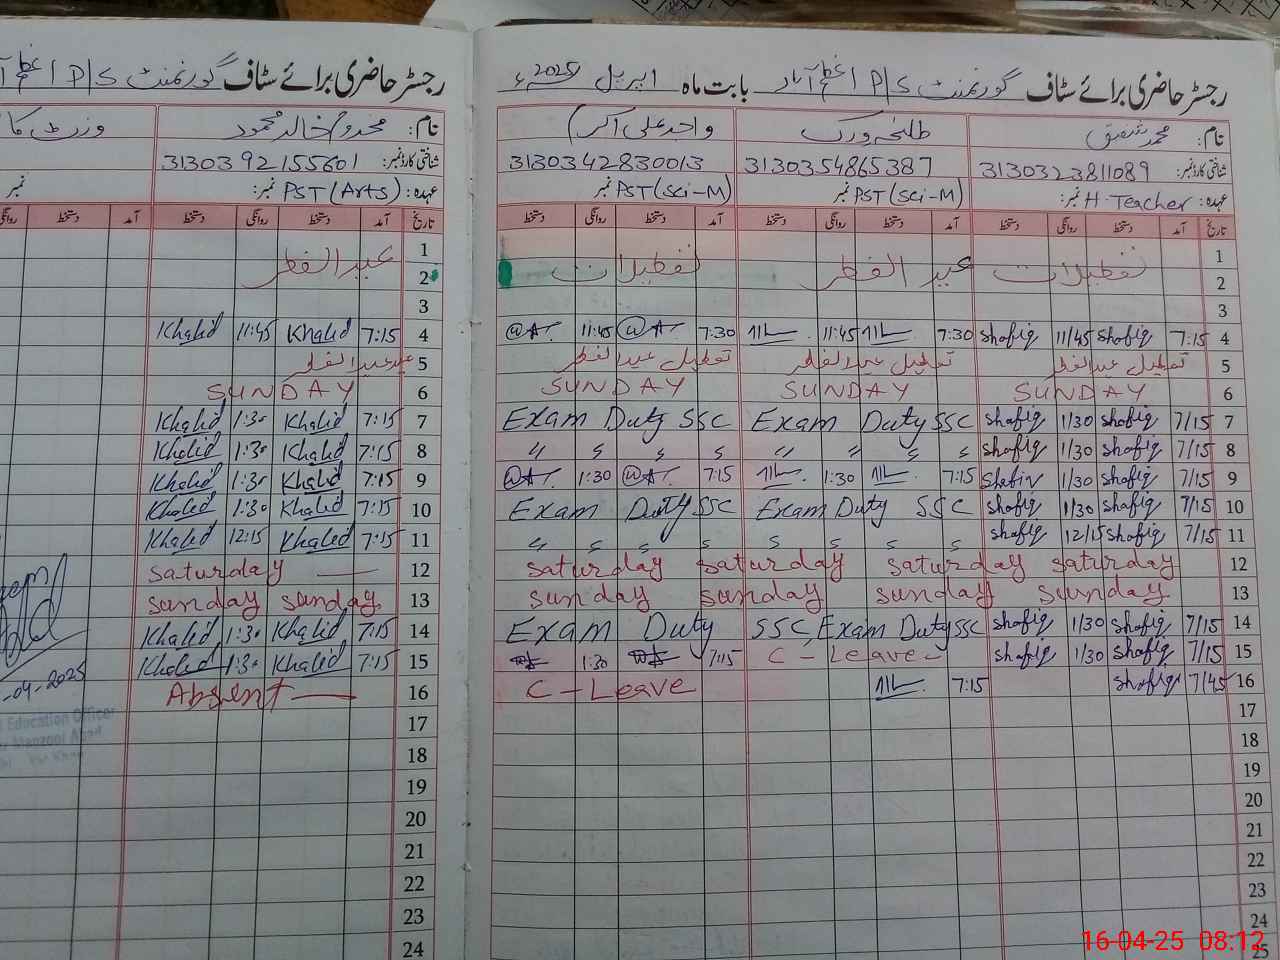 رجسٹر حاضری برائے سٹاف گورنمنٹ P/S اعظم آباد بابت ماہ اپریل 2025ء
نام: محمد شفیق
طلحہ ورک
واحد علی اکبر
شناختی کارڈ نمبر: 3130323811089
3130354865387
3130342830013
عہدہ: H-Teacher نمبر:
PST (Sci-M) نمبر
PST (Sci-M) نمبر
تاریخ آمد دستخط روانگی دستخط آمد دستخط روانگی دستخط آمد دستخط روانگی دستخط
1
2 تعطیلات عید الفطر تعطیلات
3
4 7:15 Shafiq 11/45 Shafiq 7:30 11:45 7:30 11:45
5 تعطیل عید الفطر تعطیل عید الفطر تعطیل عید الفطر
6 SUNDAY SUNDAY SUNDAY
7 Exam Duty SSC Exam Duty SSC Shafiq 1/30 Shafiq 7/15
8 〃 〃 〃 〃 〃 〃 〃 〃 Shafiq 1/30 Shafiq 7/15
9 1:30 7:15 1:30 7:15 Shafiq 1/30 Shafiq 7/15
10 Exam Duty SSC Exam Duty SSC Shafiq 1/30 Shafiq 7/15
11 〃 〃 〃 〃 〃 〃 〃 〃 Shafiq 12/15 Shafiq 7/15
12 Saturday Saturday Saturday Saturday
13 Sunday Sunday Sunday Sunday
14 Exam Duty SSC, Exam Duty SSC Shafiq 1/30 Shafiq 7/15
15 1:30 7:15 C - Leave - Shafiq 1/30 Shafiq 7/15
16 C - Leave 7:15 Shafiq 7/45
17
18
19
20
21
22
23
24
25
رجسٹر حاضری برائے سٹاف گورنمنٹ P/S اعظم
نام: مخدوم خالد محمود
شناختی کارڈ نمبر: 3130392155601
عہدہ: PST (Arts) نمبر:
نمبر
تاریخ آمد دستخط روانگی دستخط آمد دستخط روانگی
1 عید الفطر
2
3
4 Khalid 11:45 Khalid 7:15
5 عید الفطر
6 SUNDAY
7 Khalid 1:30 Khalid 7:15
8 Khalid 1:30 Khalid 7:15
9 Khalid 1:30 Khalid 7:15
10 Khalid 1:30 Khalid 7:15
11 Khalid 12:15 Khalid 7:15
12 Saturday
13 Sunday Sunday
14 Khalid 1:30 Khalid 7:15
15 Khalid 1:30 Khalid 7:15
16 Absent
17
18
19
20
21
22
23
24
-04-2025
Education Officer
16-04-25 08:12